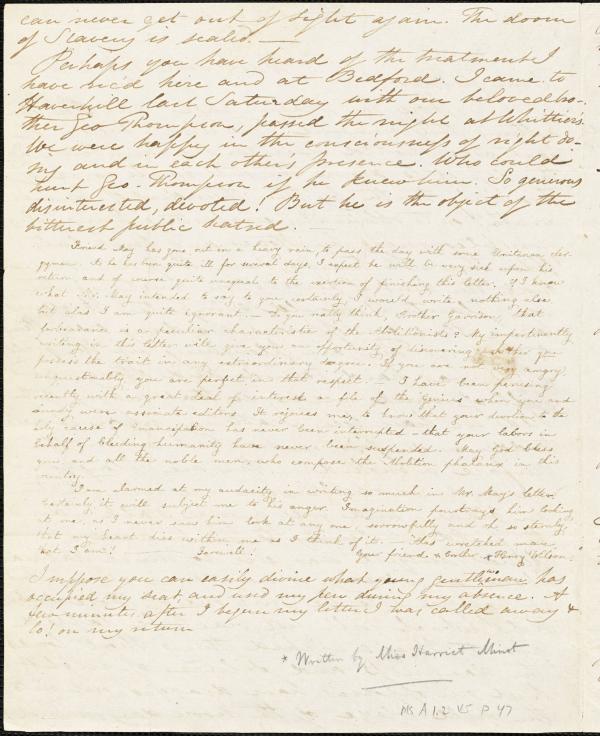 can never get out of sight again. The doom
of Slavery is sealed. —
Perhaps you have heard of the treatment I
have rec'd here and at Bedford. I came to
Haverhill last Saturday with our beloved bro-
ther Geo Thompson, passed the night at Whittier's.
We were happy in the consciousness of right do-
ing and in each other's presence. Who could
hurt Geo. Thompson if he knew him. So generous
disinterested, devoted! But he is the object of the
bitterest public hatred.
Friend May has gone out in a heavy rain, to pass the day with some Unitarian cler-
gyman. As he has been quite ill for several days, I expect he will be very sick upon his
return, and of course quite unequal to the exertion of finishing this letter. If I knew
what Mr. May intended to say to you, certainly I would write nothing else
but alas I am quite ignorant. — Do you really think, Brother Garrison, that
forbearance is a peculiar characteristic of the Abolitionists? My impertinently
writing in this letter will give you an opportunity of discovering whether you
possess the trait in any extraordinary degree. If you are not very angry,
unquestionably you are perfect in that respect. — I have been perusing
recently with a great deal of interest a file of the Genius when you and
Lundy were associate editors. It rejoices me, to know that your devotion to the
holy cause of Emancipation has never been interrupted — that your labors in
behalf of bleeding humanity have never been suspended. May God bless
you and all the noble men, who compose the Abolition phalanx in this
country.
I am alarmed at my audacity in writing so much in Mr. May's letter.
Certainly it will subject me to his anger. Imagination pourtrays him looking
at me, as I never saw him look at any one, sorrowfully and oh so sternly,
that my heart dies within me as I think of it. — Thus wretched man
that I am! — Farewell! Your friend & brother, * Henry Wilson.
I suppose you can easily divine what young gentleman has
occupied my seat, and used my pen during my absence. A
few minutes after I begun my letter I was called away &
lo! on my return
* Written by Miss Harriet Minot
Ms A 1.2 v5 p 47